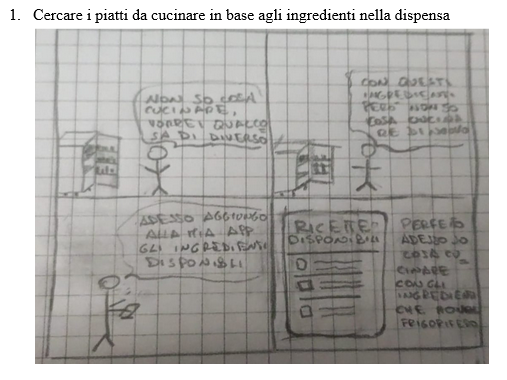 1. Cercare i piatti da cucinare in base agli ingredienti nella dispensa
NON SO COSA
CUCINARE,
VORREI QUALCO
SA DI DIVERSO
CON QUESTI
INGREDIENTI
PERÒ NON SO
COSA CUCINA
RE DI NUOVO
ADESSO AGGIUNGO
ALLA MIA APP
GLI INGREDIENTI
DISPONIBILI
RICETTE
DISPONIBILI
PERFETTO
ADESSO SO
COSA CU_
CINARE
CON GLI
INGREDIENTI
CHE HO NEL
FRIGORIFERO